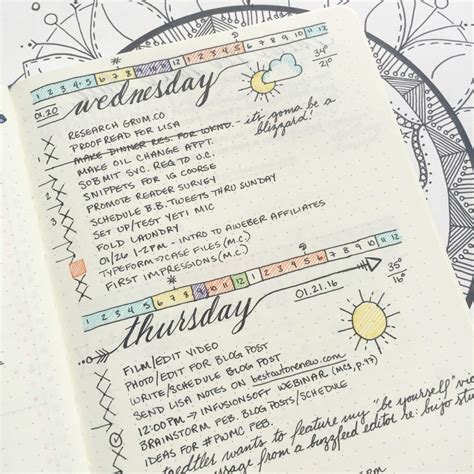 1 2 3 4 5 6 7 8 9 10 11 12 1 2 3 4 5 6 7 8 9 10 11 12
01.20
wednesday
34°
21°
RESEARCH GRUM.CO
PROOFREAD FOR LISA
MAKE DINNER RES. FOR WKND. - it's gonna be a blizzard!
MAKE OIL CHANGE APPT.
SUBMIT SVC. REQ TO U.C.
SNIPPETS FOR IG COURSE
PROMOTE READER SURVEY
SCHEDULE B.B. TWEETS THRU SUNDAY
SET UP/TEST YETI MIC
FOLD LAUNDRY
01/26 1-2PM - INTRO TO AWEBER AFFILIATES
TYPEFORM → CASE FILES (M.C.)
FIRST IMPRESSIONS (M.C.)
1 2 3 4 5 6 7 8 9 10 11 12 1 2 3 4 5 6 7 8 9 10 11 12
thursday
01.21.16
35°
16°
FILM/EDIT VIDEO
PHOTO/EDIT FOR BLOG POST
WRITE/SCHEDULE BLOG POST
SEND LISA NOTES ON bestautorenew.com
12:00PM → INFUSIONSOFT WEBINAR (MCS, p.47)
BRAINSTORM FEB. BLOG POSTS/SCHEDULE
IDEAS FOR #PWMC FEB.
wants to feature my "be yourself"
message from a buzzfeed editor re: bujo